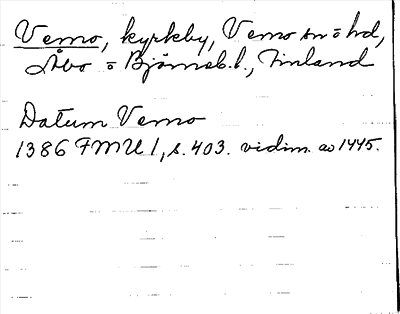 Vemo, kyrkby, Vemo sn o hd,
Åbo o Björneb. l., Finland
Datum Vemo
1386 FMU 1, s. 403. vidim. av 1445.